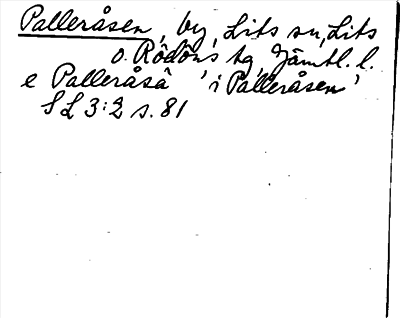 Palleråsen, by, Lits sn, Lits
o. Rödöns tg, Jämtl. l.
e Palleråsâ 'i Palleråsen'
SL 3:2 s. 81